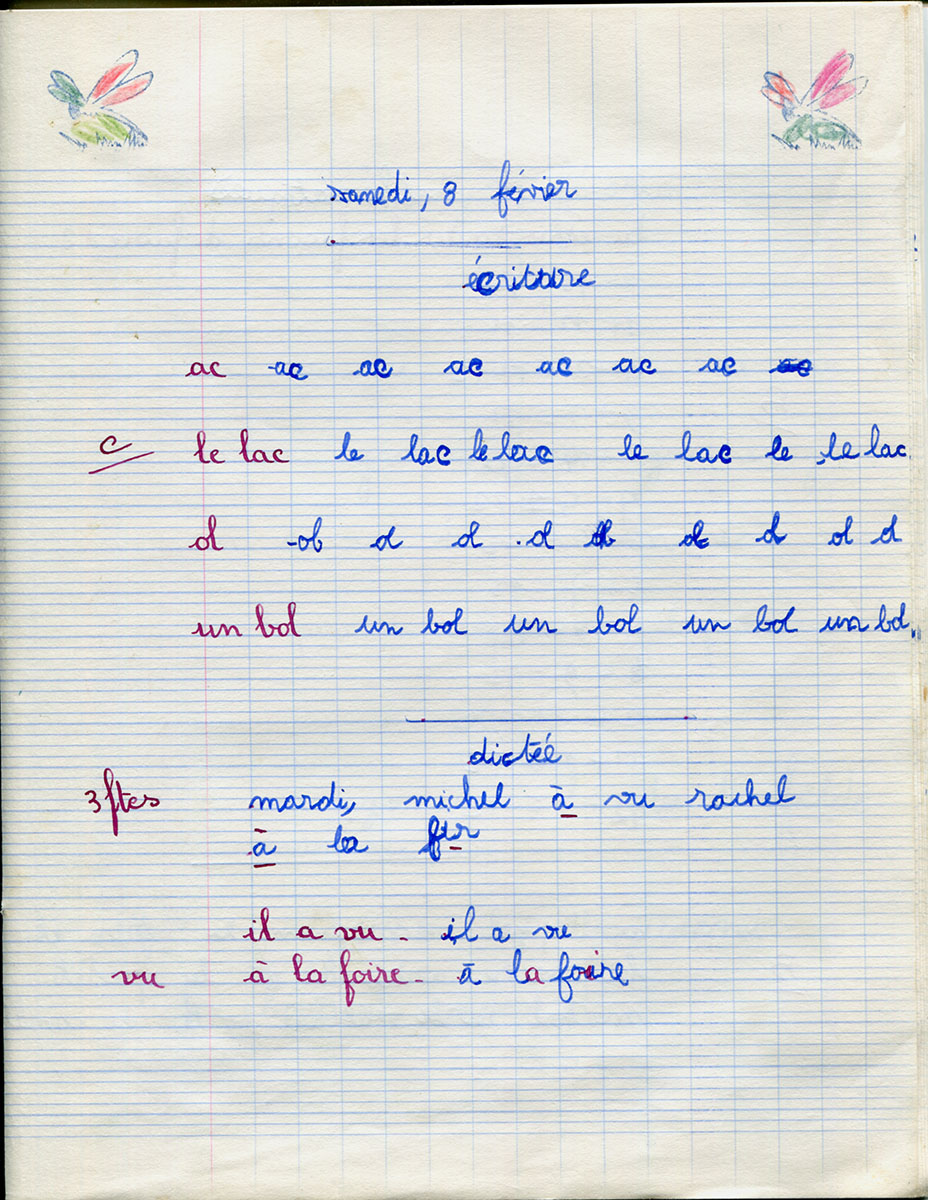 samedi, 8 février
écriture
ac ac ac ac ac ac ac ac
c le lac le lac le lac le lac le le lac
ol ol ol ol ol ol ol ol ol
un bol un bol un bol un bol un bol
dictée
3 ftes mardi, michel à vu rachel
à la
il a vu - il a vu
vu à la foire - à la foire